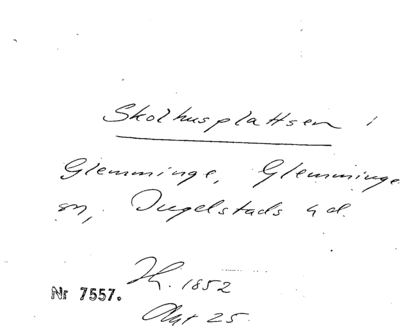 Skolhusplattsen i
Glemminge, Glemminge
sn, Ingelstads hd.
Th. 1852
Nr 7557.
Akt 25.